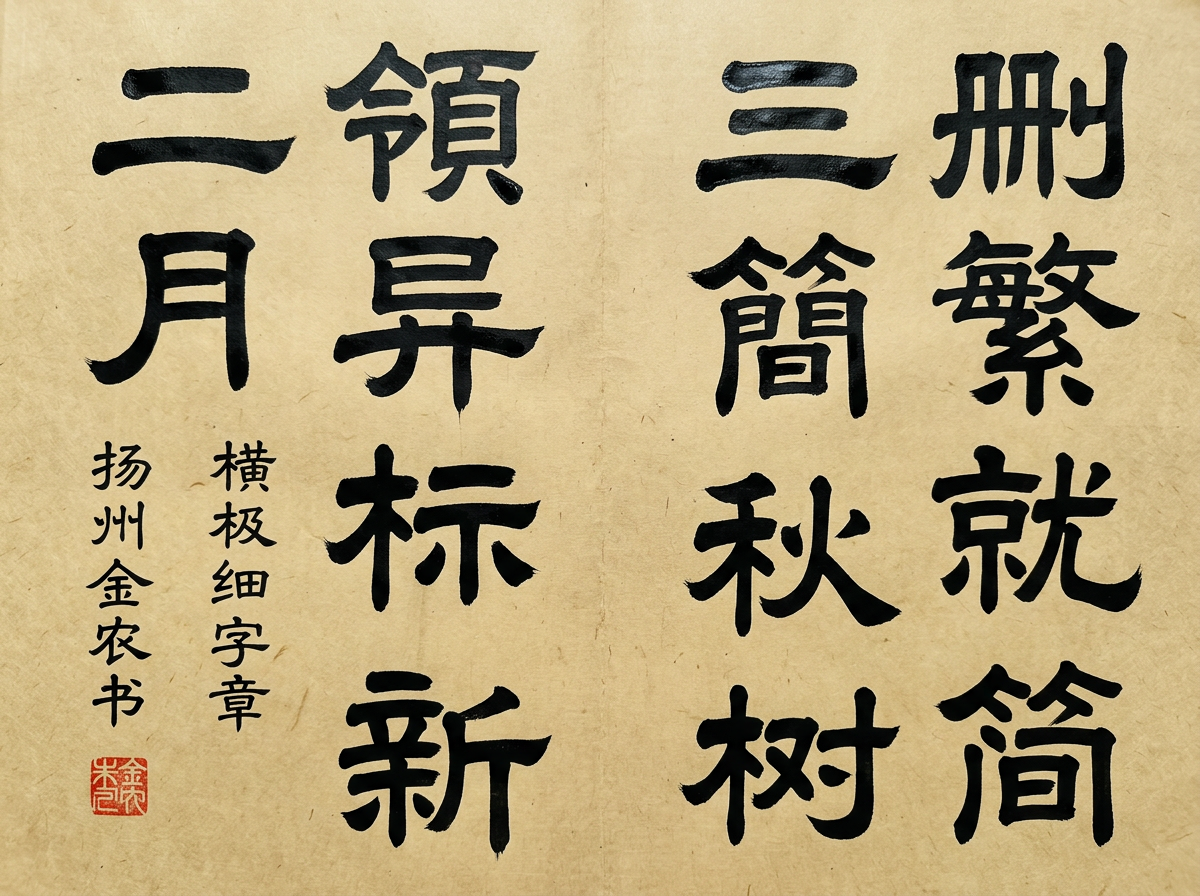 删繁就简
三簡秋树
領异标新
二月
横极细字章
扬州金农书